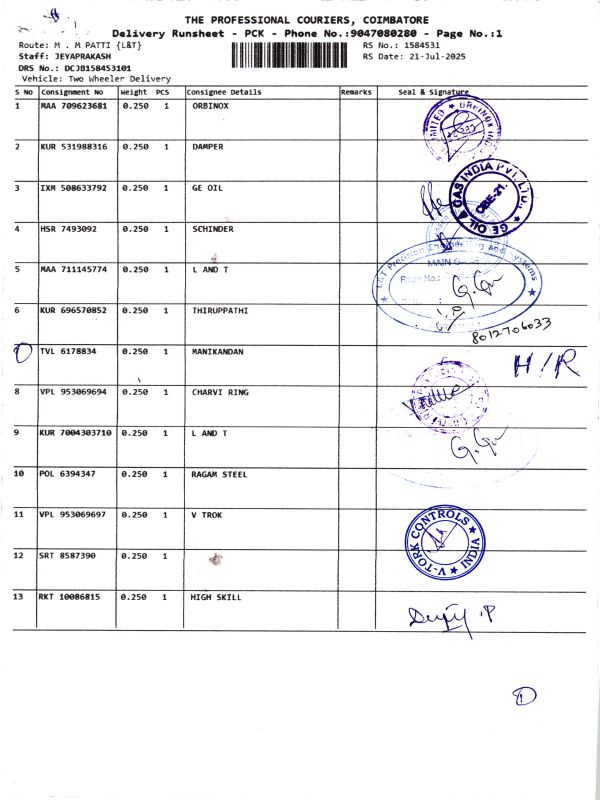 THE PROFESSIONAL COURIERS, COIMBATORE
Delivery Runsheet - PCK - Phone No.:9047080280 - Page No.:1
Route: M . M PATTI {L&T}
RS No.: 1584531
Staff: JEYAPRAKASH
RS Date: 21-Jul-2025
DRS No.: DCJB158453101
Vehicle: Two Wheeler Delivery
S NO Consignment No Weight PCS Consignee Details Remarks Seal & Signature
1 MAA 709623681 0.250 1 ORBINOX
2 KUR 531988316 0.250 1 DAMPER
3 IXM 508633792 0.250 1 GE OIL
GE OIL & GAS INDIA PVT. LTD.
CBE-21.
4 HSR 7493092 0.250 1 SCHINDER
5 MAA 711145774 0.250 1 L AND T
L&T Precision Engineering And Systems
MAIN
6 KUR 696570852 0.250 1 THIRUPPATHI
8012706033
7 TVL 6178834 0.250 1 MANIKANDAN H/R
8 VPL 953069694 0.250 1 CHARVI RING
9 KUR 7004303710 0.250 1 L AND T
10 POL 6394347 0.250 1 RAGAM STEEL
11 VPL 953069697 0.250 1 V TROK
V-TORK CONTROLS INDIA
12 SRT 8587390 0.250 1
13 RKT 10086815 0.250 1 HIGH SKILL
1